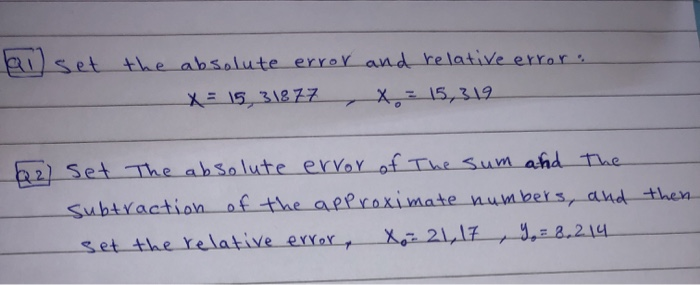 Q1) set the absolute error and relative error:
x = 15,31877 , x₀ = 15,319
Q2) Set The absolute error of The sum and The
subtraction of the approximate numbers, and then
set the relative error, x₀ = 21,17 , y₀ = 8.214